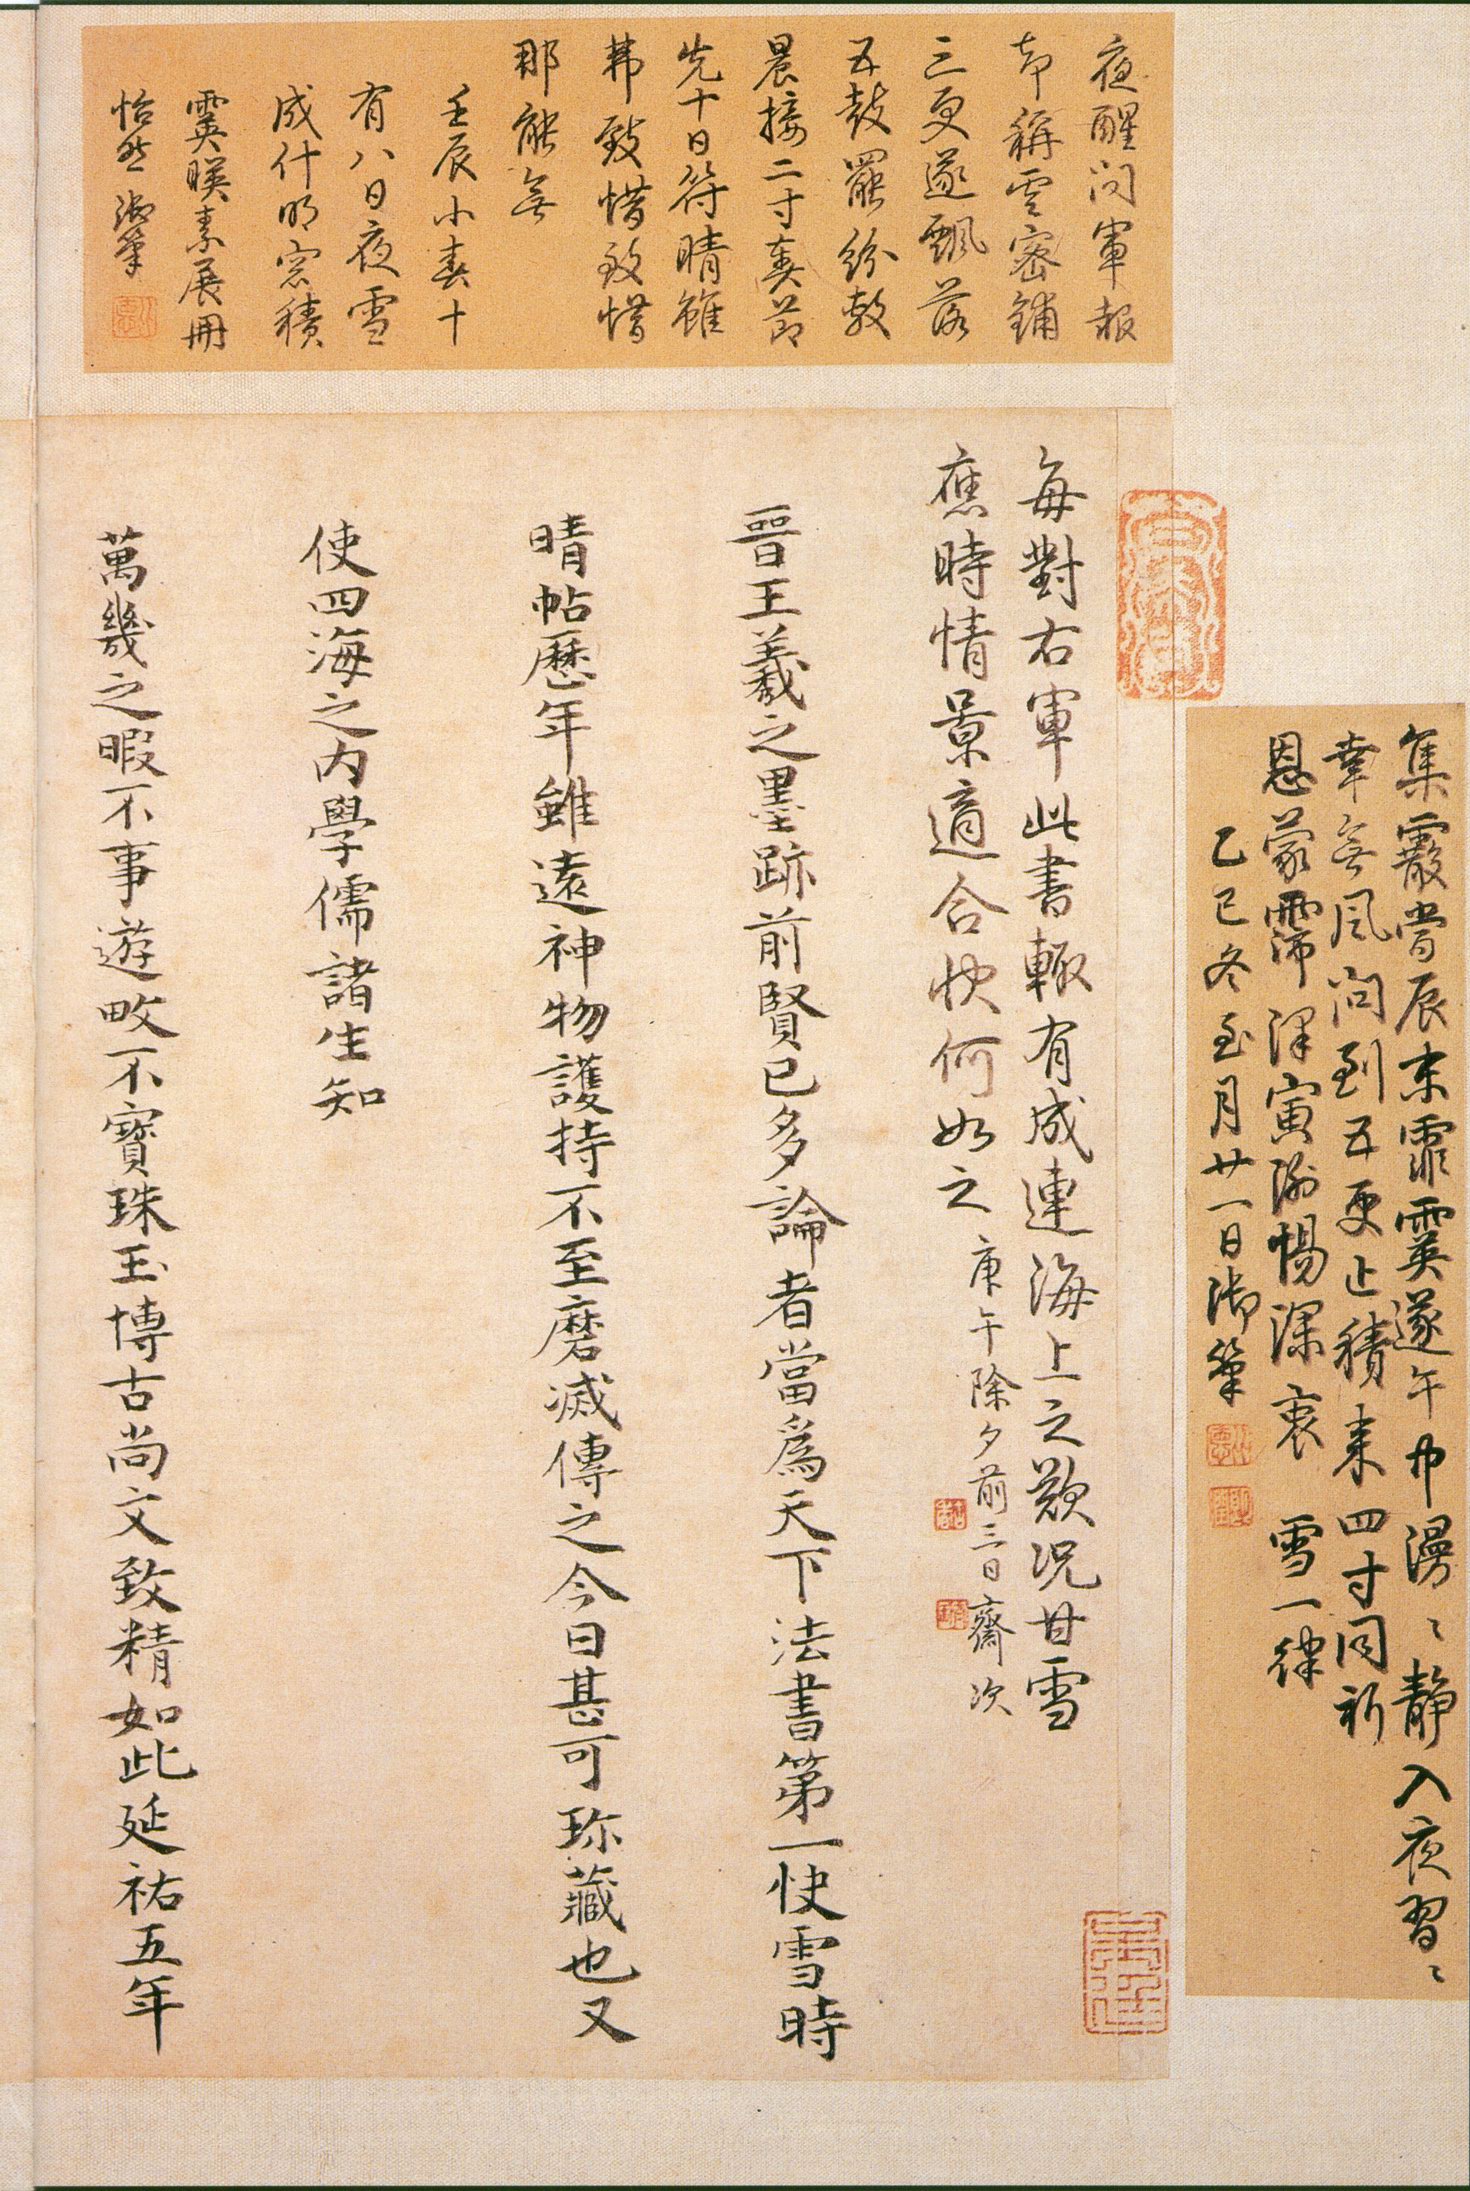 夜醒问軍報
却稱雲密鋪
三更遂飄落
五鼓罷紛敷
晨接二寸奏節
先十日符晴雖
弗致惜致惜
那能無
壬辰小春十
有八日夜雪
成什明窓積
霙暎素展冊
怡然御筆
集霰當辰末霏霙遂午中漫〻静入夜習〻
幸無風问到五更止積来四寸同祈
恩蒙霈澤寅謝惕深衷 雪一律
乙巳冬至月廿一日御筆
每對右軍此書輒有成連海上之歎况甘雪
應時情景適合快何如之 庚午除夕前三日齋次
晉王羲之墨跡前賢已多論者當爲天下法書第一快雪時
晴帖歷年雖遠神物護持不至磨滅傳之今日甚可珎藏也又
使四海之內學儒諸生知
萬幾之暇不事遊畋不寳珠玉博古尚文致精如此延祐五年